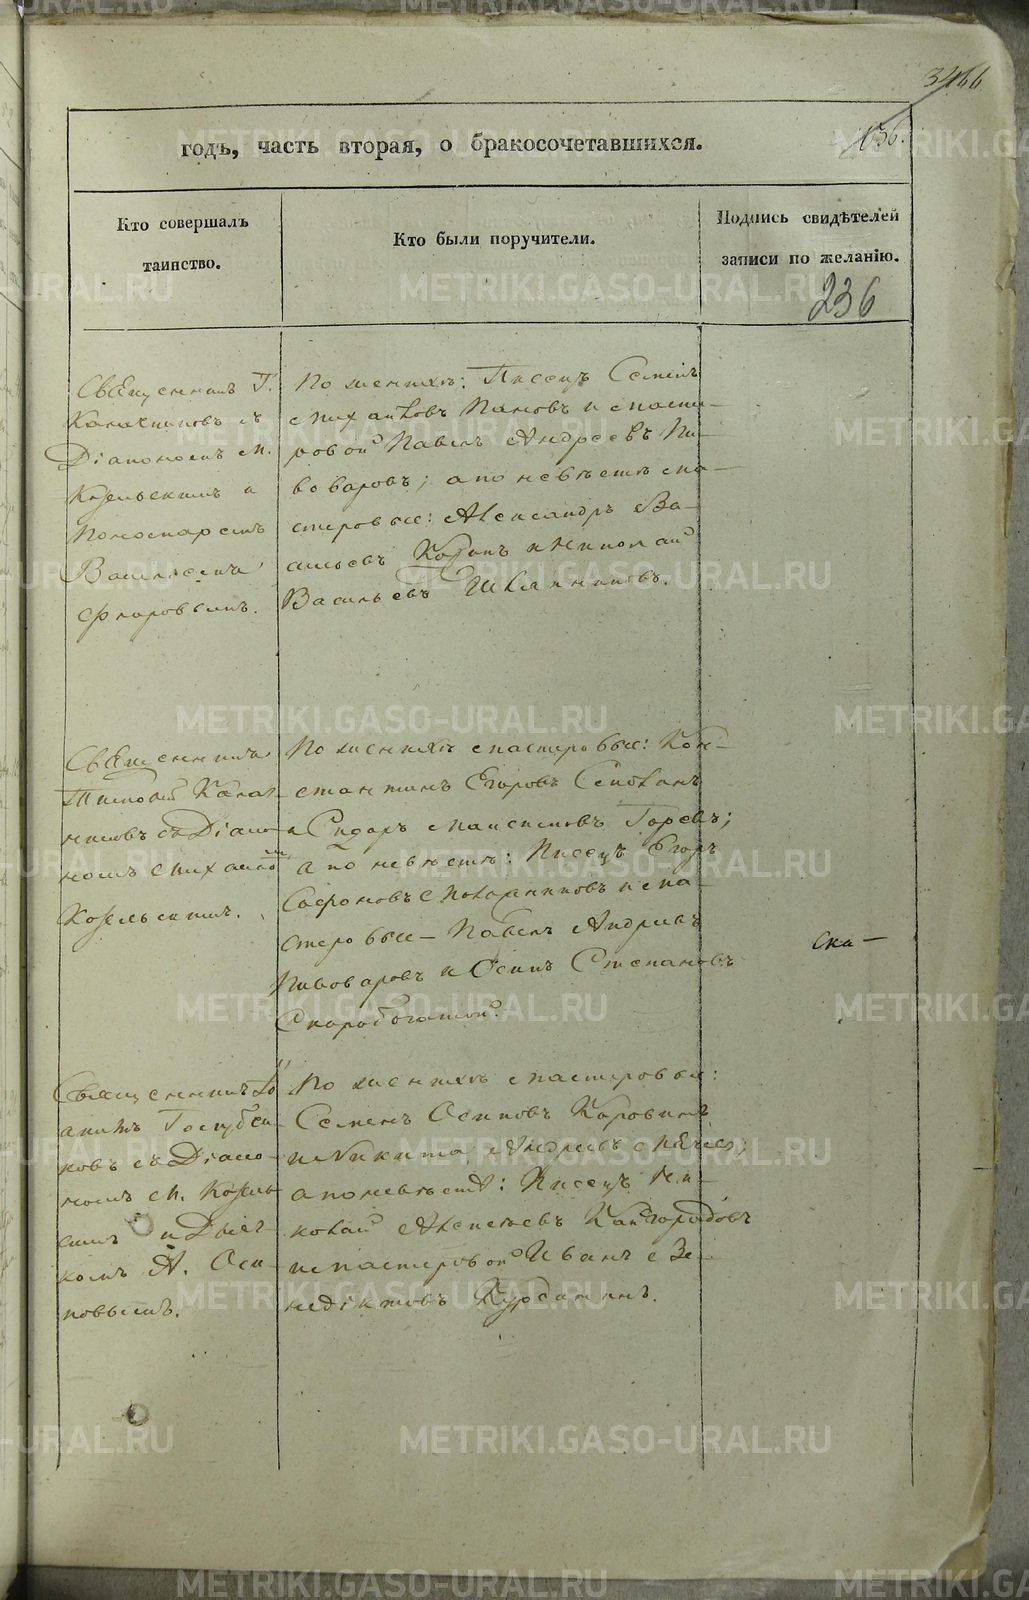 3466
годъ, часть вторая, о бракосочетавшихся.
656.
Кто совершалъ
таинство.
Кто были поручители.
Подпись свидѣтелей
записи по желанію.
236
Священникъ Т.
Калачниковъ съ
Діакономъ М.
Козельскимъ и
Пономаремъ
Василіемъ
Флоровымъ.
По женихѣ: Писецъ Семенъ
Михайловъ Пановъ и масте-
ровой Павелъ Андреевъ Пи-
воваровъ; а по невѣстѣ ма-
стеровые: Александръ Ва-
сильевъ и Николай
Васильевъ Шляпниковъ.
Священникъ
Тимофей Калач-
никовъ съ Діако-
номъ Михаиломъ
Козельскимъ.
По женихѣ мастеровые: Кон-
стантинъ Егоровъ
и Сидоръ Максимовъ Горевъ;
а по невѣстѣ: Писецъ Егоръ
Сафоновъ и ма-
стеровые Павелъ Андреевъ
Пивоваровъ и Осипъ Степановъ
Скоробогатой.
Ска—
Священникъ Іо
аннъ Голубчи-
ковъ съ Діако-
номъ М. Козель-
скимъ и Дьяч-
комъ А. Оси-
повымъ.
По женихѣ мастеровые:
Семенъ Осиповъ Коровинъ
и Никита Андреевъ
а по невѣстѣ: Писецъ Ни-
колай Алексѣевъ Кайгородовъ
и мастеровой Иванъ Ве-
недіктовъ Курбатинъ.
METRIKI.GASO-URAL.RU